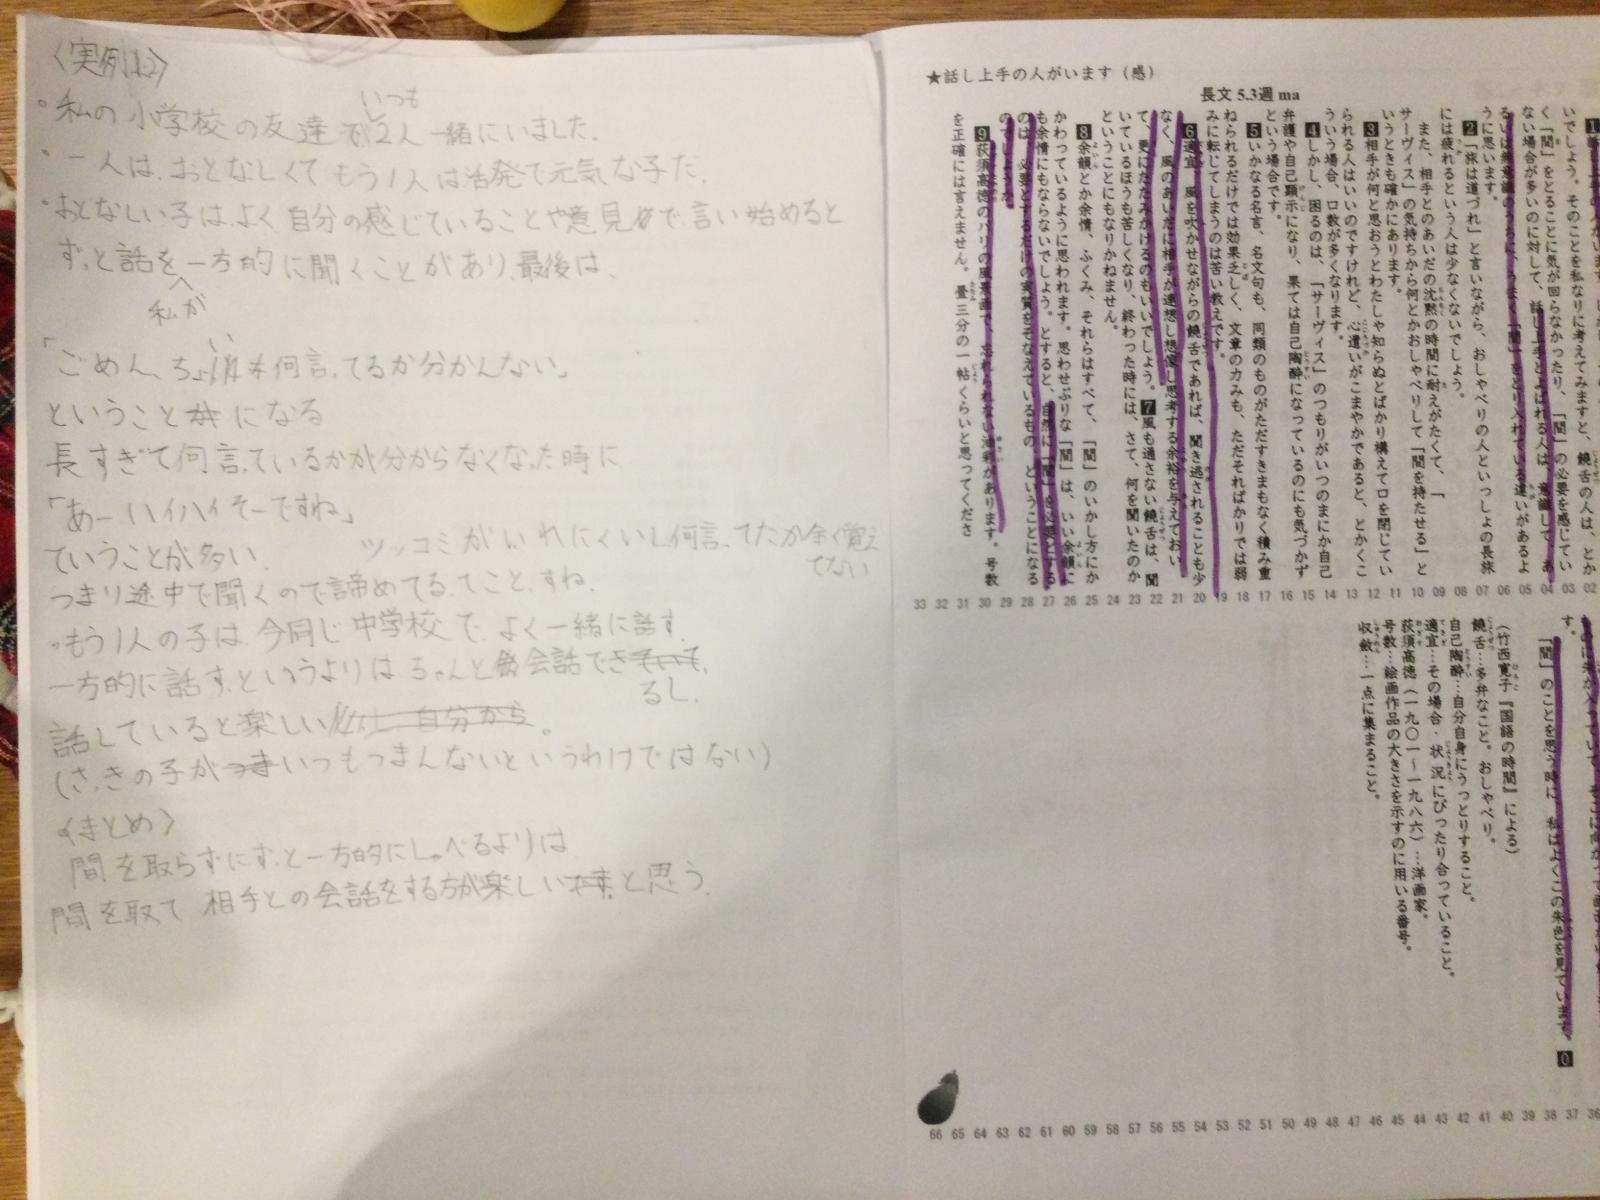 〈実例1,2〉
・私の小学校の友達 いつも2人一緒にいました.
・一人は、おとなしくてもう1人は活発で元気な子だ.
・おとなしい子は、よく自分の感じていることや意見で、言い始めると
ずっと話を私が一方的に聞くことがあり、最後は、
「ごめん、ちょい何言ってるか分かんない」
ということになる
長すぎて何言っているかが分からなくなった時に
「あー ハイハイそーですね」
ていうことが多い. ツッコミがいれにくいし何言ってたか全く覚えてない
つまり途中で聞くので諦めてるってことっすね.
・もう1人の子は、今同じ中学校で、よく一緒に話す.
一方的に話す、というよりはちゃんと会話できるし、
話していると楽しい。
(さっきの子がいつもつまんないというわけではない)
〈まとめ〉
間を取らずにずっと一方的にしゃべるよりは
間を取って相手との会話をする方が楽しいと思う.
★話し上手の人がいます（感）
長文 5.3週 ma
いでしょう。そのことを私なりに考えてみますと、饒舌の人は、とか
く「間」をとることに気が回らなかったり、「間」の必要を感じてい
ない場合が多いのに対して、話し上手とよばれる人は、意識して、あ
るいは無意識のうちに、うまく「間」をとり入れている違いがあるよ
うに思います。
2「旅は道づれ」と言いながら、おしゃべりの人といっしょの長旅
には疲れるという人は少なくないでしょう。
また、相手とのあいだの沈黙の時間に耐えがたくて、「
サーヴィス」の気持ちから何とかおしゃべりして「間を持たせる」と
いうときも確かにあります。
3相手が何と思おうとわたしゃ知らぬとばかり構えて口を閉じてい
られる人はいいのですけれど、心遣いがこまやかであると、とかくこ
ういう場合、口数が多くなります。
4しかし、困るのは、「サーヴィス」のつもりがいつのまにか自己
弁護や自己顕示になり、果ては自己陶酔になっているのにも気づかず
という場合です。
5いかなる名言、名文句も、同類のものがただすきまもなく積み重
ねられるだけでは効果乏しく、文章の力みも、ただそればかりでは弱
みに転じてしまうのは苦い教えです。
6適宜、風を吹かせながらの饒舌であれば、聞き逃されることも少
なく、風のあいだに相手が連想し想像し思考する余裕を与えておい
て、更にたたみかけるのもいいでしょう。7風も通さない饒舌は、聞
いているほうも苦しくなり、終わった時には、さて、何を聞いたのか
ということにもなりかねません。
8余韻とか余情、ふくみ、それらはすべて、「間」のいかし方にか
かわっているように思われます。思わせぶりな「間」は、いい余韻に
も余情にもならないでしょう。とすると、自然に「間」を必要とする
のは、必要とするだけの実質をそなえているもの、ということになる
のでしょうか。
9荻須高徳のパリの風景画で、忘れられない油彩があります。号数
を正確には言えません。畳三分の一帖くらいと思ってくださ
33 32 31 30 29 28 27 26 25 24 23 22 21 20 19 18 17 16 15 14 13 12 11 10 09 08 07 06 05 04 03 02
す。
「間」のことを思う時に、私はよくこの朱色を見ています。0
（竹西寛子『国語の時間』による）
饒舌…多弁なこと。おしゃべり。
自己陶酔…自分自身にうっとりすること。
適宜…その場合・状況にぴったり合っていること。
荻須高徳（一九〇一～一九八六）…洋画家。
号数…絵画作品の大きさを示すのに用いる番号。
収斂…一点に集まること。
66 65 64 63 62 61 60 59 58 57 56 55 54 53 52 51 50 49 48 47 46 45 44 43 42 41 40 39 38 37 36